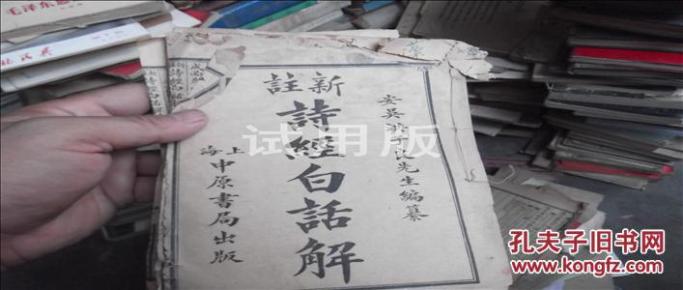 毛泽东思
新註
詩經白話解
安吳洪子良先生編纂
上海中原書局出版
试用版
孔夫子旧书网
www.kongfz.com